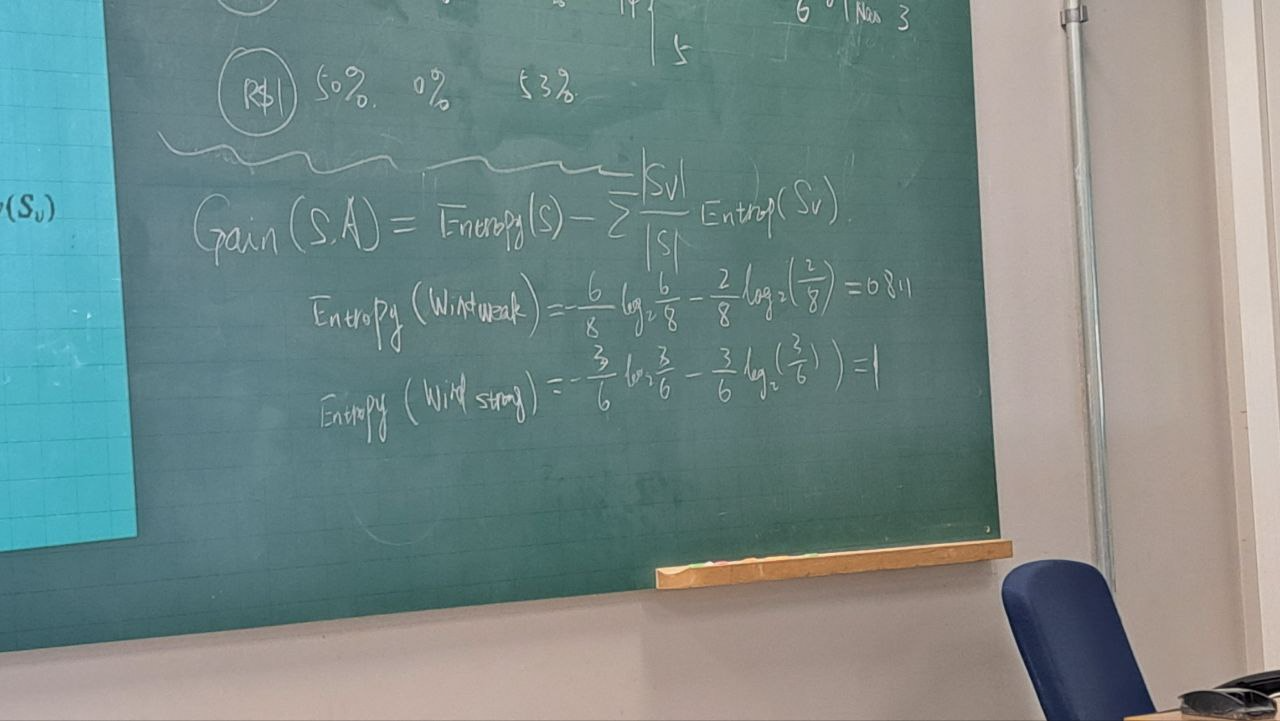 6 No 3
5
R$1 50%. 0% 53%.
Gain(S.A) = Entropy(S) - Σ |Sv|/|S| Entrop(Sv).
(Sᵥ)
Entropy (Wind weak) = -6/8 log₂ 6/8 - 2/8 log₂(2/8) = 0811
Entropy (Wind strong) = -3/6 log₂ 3/6 - 3/6 log₂(3/6)) = 1